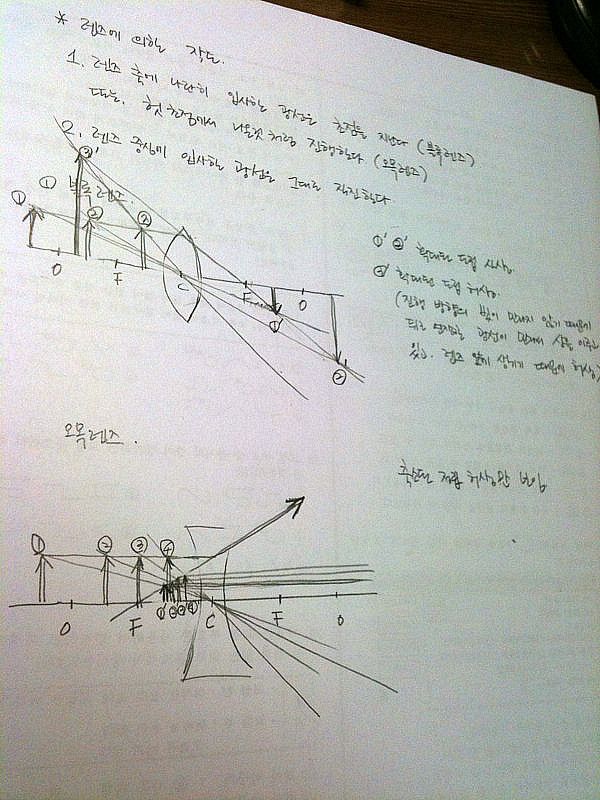 * 렌즈에 의한 작도.
1. 렌즈 축에 나란히 입사하는 광선은 초점을 지난다 (볼록렌즈)
또는, 헛초점에서 나온것 처럼 진행한다 (오목렌즈)
2. 렌즈 중심에 입사하는 광선은 그대로 직진한다
① 볼록렌즈.
③'
① ② ③
O F C F O
①'
②'
①' ②' 확대된 도립 실상.
③' 확대된 도립 허상.
(진행 방향의 빛이 만나지 않기 때문에
뒤로 연장한 광선이 만나서 상을 이루고
있음. 렌즈 앞에 생기기 때문에 허상)
오목렌즈.
축소된 정립 허상만 보임
① ② ③ ④
①' ②' ③' ④'
O F C F O